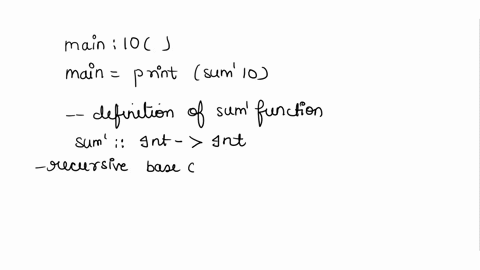 main : IO ( )
main = print (sum' 10)
-- definition of sum' function
sum' :: Int -> Int
- recursive base c